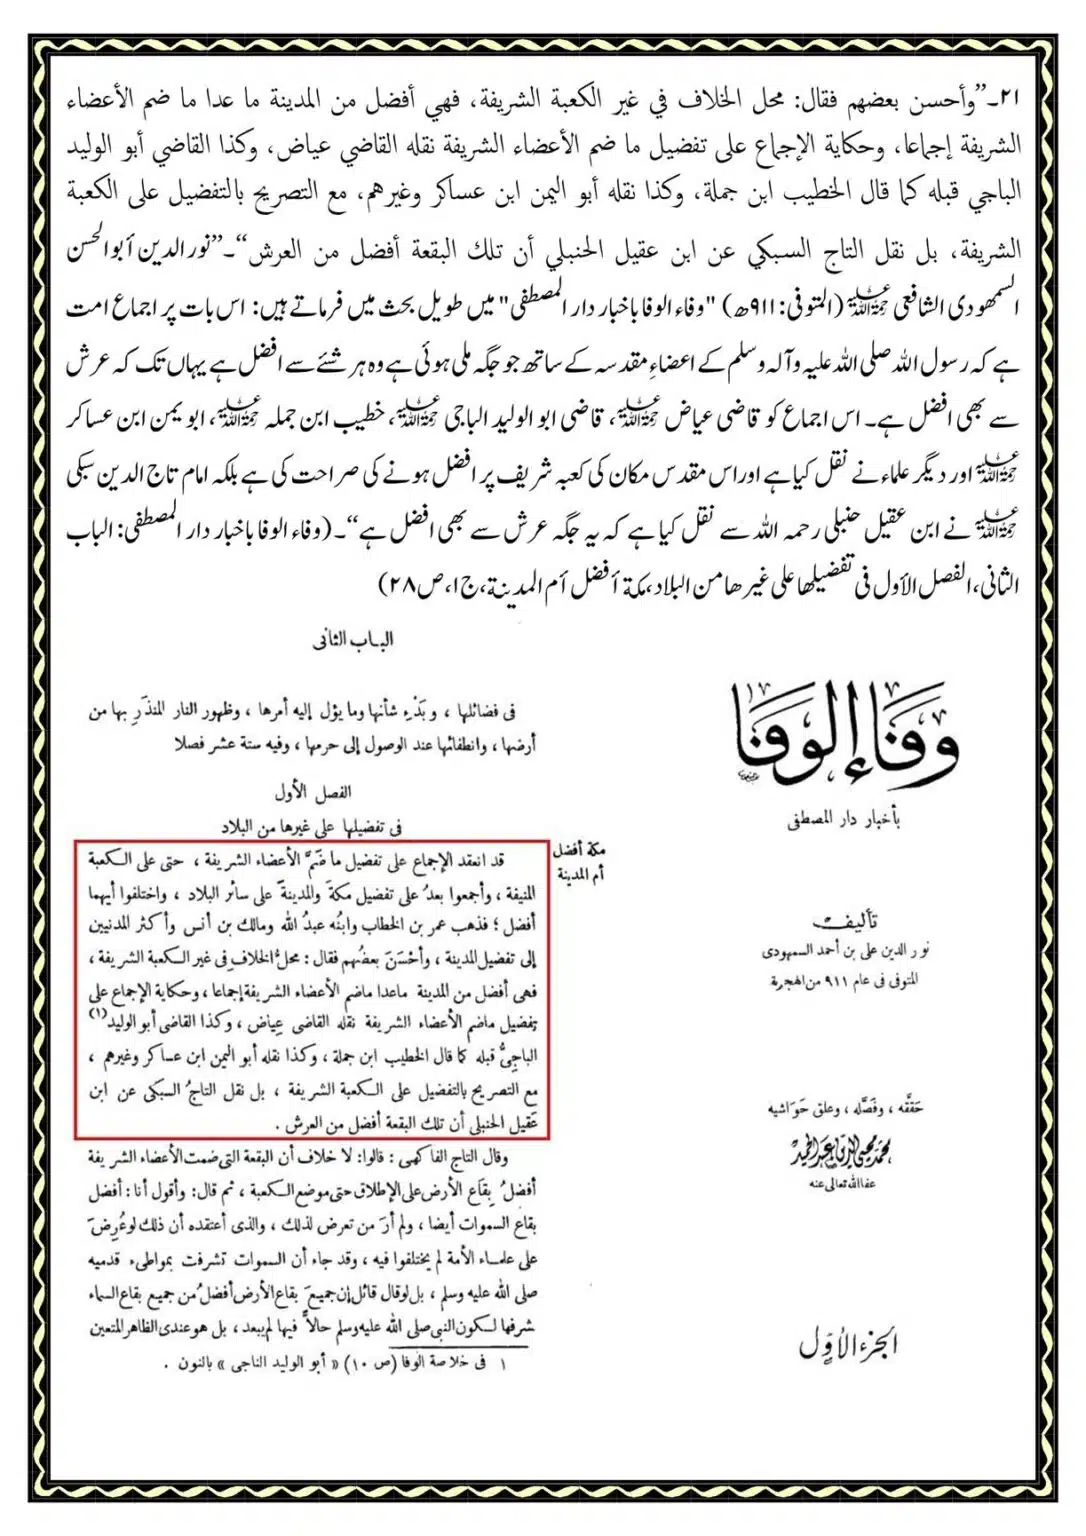 ۲۱۔”وأحسن بعضهم فقال: محل الخلاف في غير الكعبة الشريفة، فهي أفضل من المدينة ما عدا ما ضم الأعضاء
الشريفة إجماعا، وحكاية الإجماع على تفضيل ما ضم الأعضاء الشريفة نقله القاضي عياض، وكذا القاضي أبو الوليد
الباجي قبله كما قال الخطيب ابن جملة، وكذا نقله أبو اليمن ابن عساكر وغيرهم، مع التصريح بالتفضيل على الكعبة
الشريفة، بل نقل التاج السبكي عن ابن عقيل الحنبلي أن تلك البقعة أفضل من العرش“۔”نور الدین أبو الحسن
السمھودی الشافعی رحمۃ اللہ علیہ (المتوفی: ۹۱۱ھ) "وفاء الوفا باخبار دار المصطفی" میں طویل بحث میں فرماتے ہیں: اس بات پر اجماع امت
ہے کہ رسول اللہ صلی اللہ علیہ وآلہ وسلم کے اعضاءِ مقدسہ کے ساتھ جو جگہ ملی ہوئی ہے وہ ہر شئے سے افضل ہے یہاں تک کہ عرش
سے بھی افضل ہے۔ اس اجماع کو قاضی عیاض رحمۃ اللہ علیہ، قاضی ابو الولید الباجی رحمۃ اللہ علیہ، خطیب ابن جملہ رحمۃ اللہ علیہ، ابو یمن ابن عساکر
رحمۃ اللہ علیہ اور دیگر علماء نے نقل کیا ہے اور اس مقدس مکان کی کعبہ شریف پر افضل ہونے کی صراحت کی ہے بلکہ امام تاج الدین سبکی
رحمۃ اللہ علیہ نے ابن عقیل حنبلی رحمہ اللہ سے نقل کیا ہے کہ یہ جگہ عرش سے بھی افضل ہے“۔ (وفاء الوفا باخبار دار المصطفی: الباب
الثانی، الفصل الأول فی تفضیلھا علی غیرھا من البلاد، مکۃ أفضل أم المدینۃ، ج۱، ص۲۸)
وفاء الوفا
بأخبار دار المصطفى
تأليف
نور الدين على بن أحمد السمهودى
المتوفى فى عام ٩١١ من الهجرة
حققه ، وفصله ، وعلق حواشيه
محمد محيى الدين عبد الحميد
عفا الله تعالى عنه
الجزء الأول
الباب الثانى
فى فضائلها ، وبَدْء شأنها وما يؤل إليه أمرها ، وظهور النار المنذَر بها من
أرضها ، وانطفائها عند الوصول إلى حرمها ، وفيه ستة عشر فصلا
الفصل الأول
فى تفضيلها على غيرها من البلاد
مكة أفضل
أم المدينة
قد انعقد الإجماع على تفضيل ما ضَمَّ الأعضاء الشريفة ، حتى على الكعبة
المنيفة ، وأجمعوا بعدُ على تفضيل مكة والمدينة على سائر البلاد ، واختلفوا أيهما
أفضل ؛ فذهب عمر بن الخطاب وابنُه عبدُ الله ومالك بن أنس وأكثر المدنيين
إلى تفضيل المدينة ، وأحْسَنَ بعضُهم فقال : محلُّ الخلاف فى غير الكعبة الشريفة ،
فهى أفضل من المدينة ماعدا ماضم الأعضاء الشريفة إجماعا ، وحكاية الإجماع على
تفضيل ماضم الأعضاء الشريفة نقله القاضى عياض ، وكذا القاضى أبو الوليد(١)
الباجىُّ قبله كما قال الخطيب ابن جملة ، وكذا نقله أبو اليمن ابن عساكر وغيرهم ،
مع التصريح بالتفضيل على الكعبة الشريفة ، بل نقل التاجُ السبكى عن ابن
عَقيل الحنبلى أن تلك البقعة أفضل من العرش .
وقال التاج الفاكهى : قالوا : لا خلاف أن البقعة التى ضمت الأعضاء الشريفة
أفضلُ بقاع الأرض على الإطلاق حتى موضع الكعبة ، ثم قال : وأقول أنا : أفضل
بقاع السموات أيضا ، ولم أرَ من تعرض لذلك ، والذى أعتقده أن ذلك لو عُرِضَ
على علماء الأمة لم يختلفوا فيه ، وقد جاء أن السموات تشرفت بمواطىء قدميه
صلى الله عليه وسلم ، بل لو قال قائل إن جميعَ بقاع الأرض أفضلُ من جميع بقاع السماء
شرفها لكون النبى صلى الله عليه وسلم حالاًّ فيها لم يبعد ، بل هو عندى الظاهر المتعين
١ فى خلاصة الوفا (ص ١٠) « أبو الوليد الناجى » بالنون .